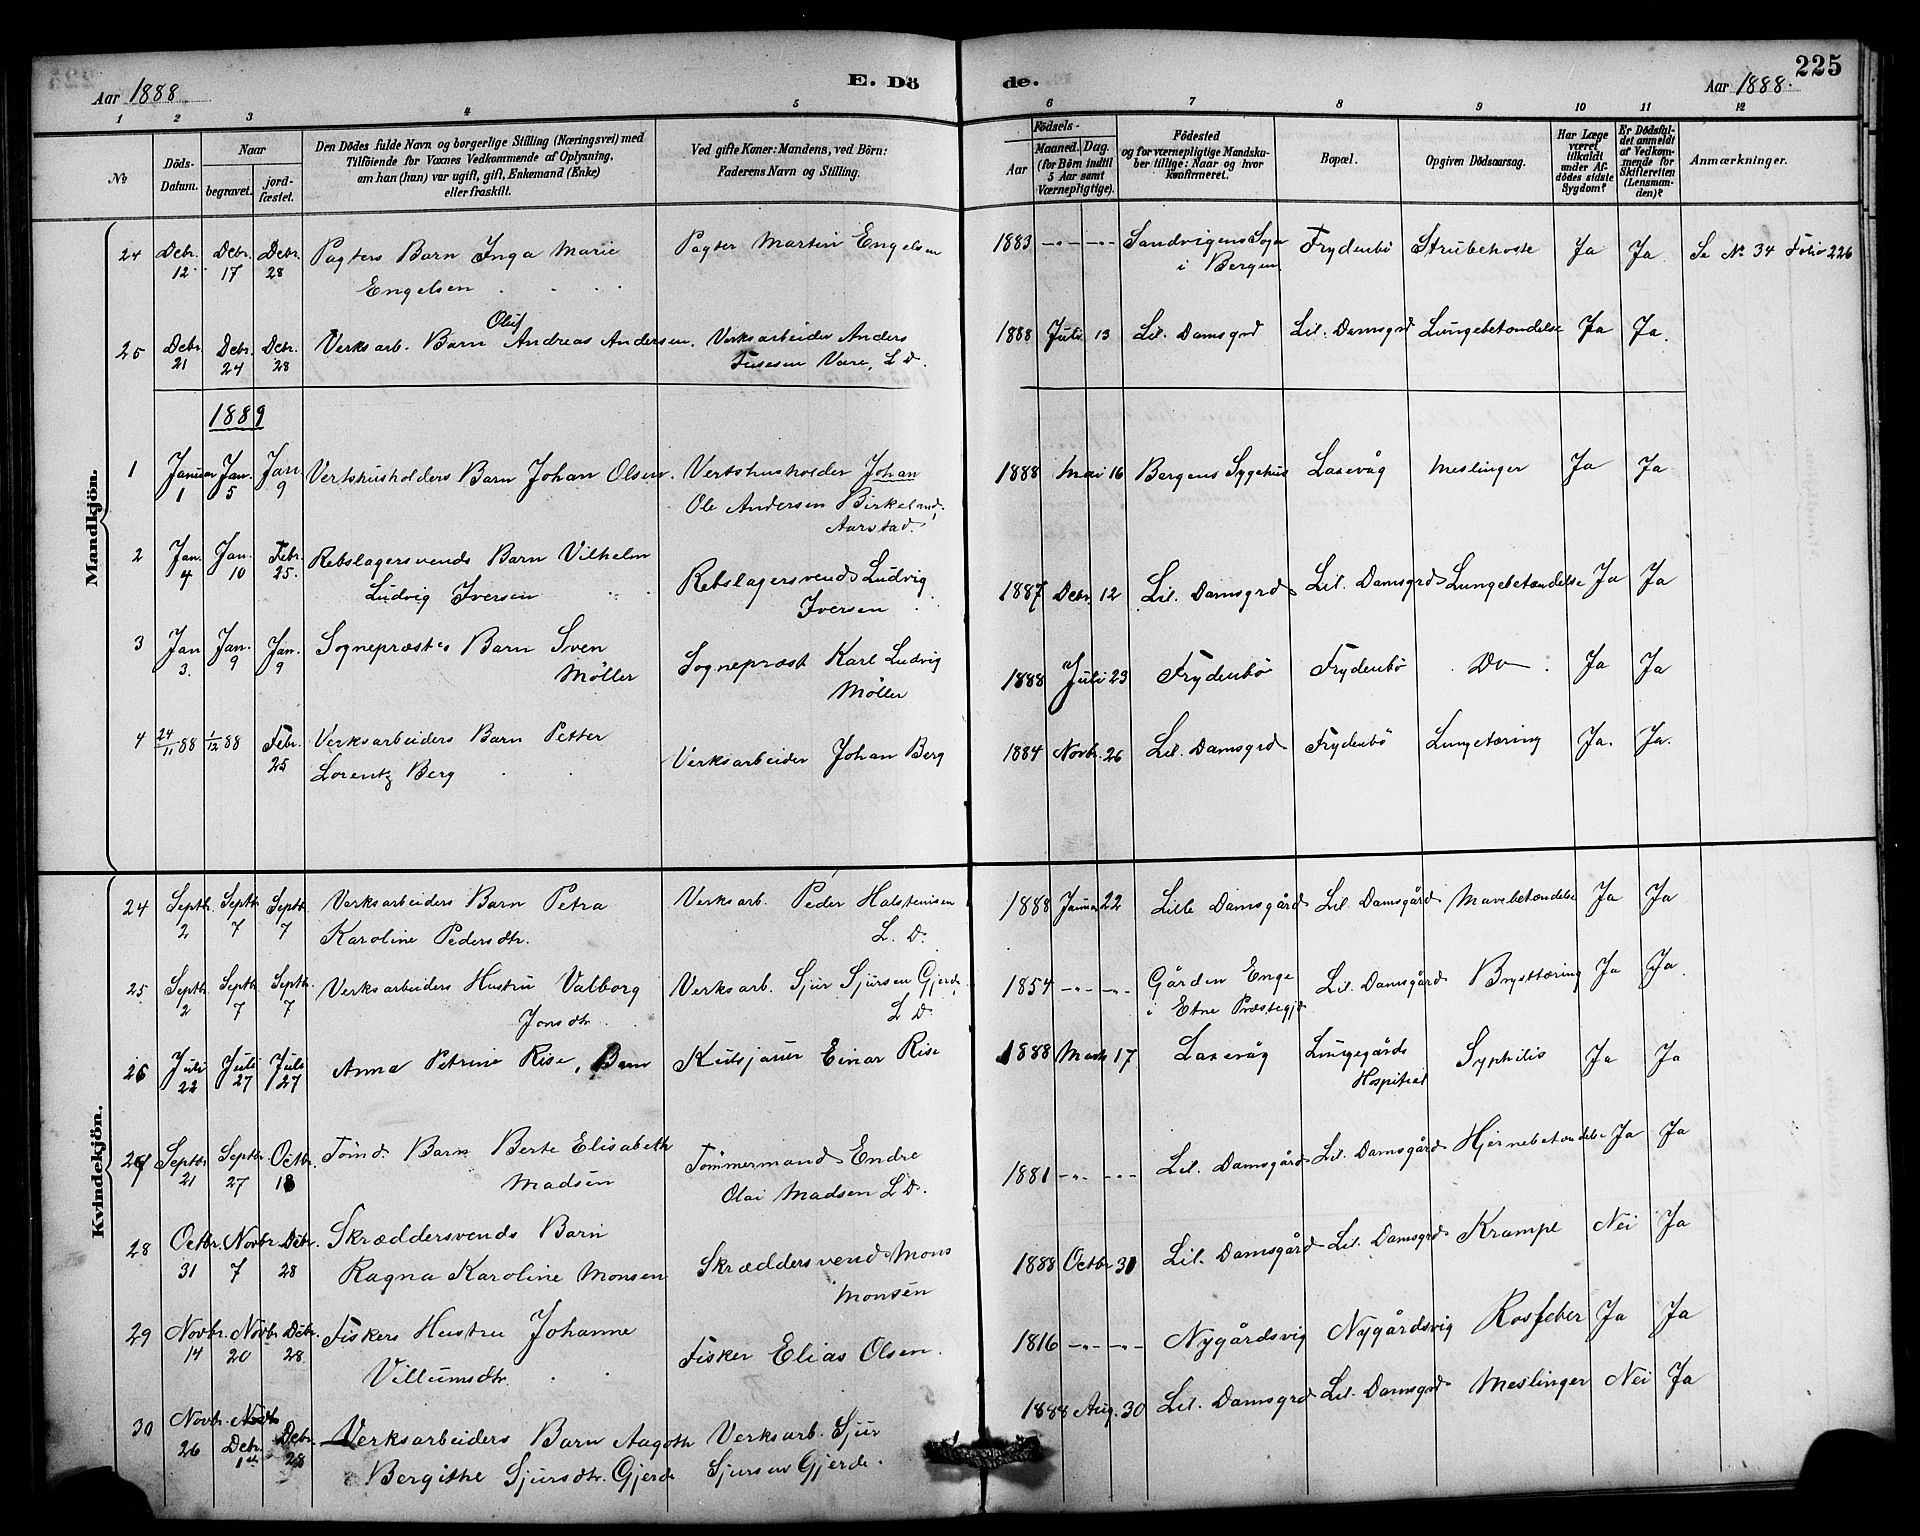 225
Aar 1888
E. Dö
de.
Aar 1888.
1 2 3 4 5 6 7 8 9 10 11 12
No
Döds-Datum.
Naar
begravet.
jord-fæstet.
Den Dödes fulde Navn og borgerlige Stilling (Næringsvei) med
Tilföiende for Voxnes Vedkommende af Oplysning,
om han (hun) var ugift, gift, Enkemand (Enke)
eller fraskilt.
Ved gifte Koner: Mandens, ved Börn:
Faderens Navn og Stilling.
Födsels-
Aar
Maaned. Dag.
(for Börn indtil
5 Aar samt
Værnepligtige).
Födested
og for værnepligtige Mandska-
ber tillige: Naar og hvor
konfirmeret.
Bopæl.
Opgiven Dödsaarsag.
Har Læge
været
tilkaldt
under Af-
dödes sidste
Sygdom?
Er Dödsfal-
det anmeldt
af Vedkom-
mende for
Skifteretten
(Lensman-
den)?
Anmærkninger.
Mandkjön.
24 Debr. 12. Debr. 17 Debr. 28 Pagters Barn Inga Marie Pagter Martin Engelsen 1883 -"- -"- Sandvigens Sogn Frydenbö Strubehoste Ja Ja Se No 34 Folio 226
Engelsen i Bergen
Oluf
25 Debr. 21 Debr. 24 Debr. 28 Verksarb. Barn Andreas Andersen. Verksarbeider Anders 1888 Juli 13 Lil. Damsgrd Lil. Damsgrd Lungebetændelse Ja Ja.
Vare, L D.
1889
1 Januar 1 Jan. 5 Jan. 9 Vertshusholders Barn Johan Olsen. Vertshusholder Johan 1888 Mai 16 Bergens Sygehus Laxevåg Meslinger Ja Ja
Ole Andersen Birkeland,
Aarstad.
2 Jan. 4 Jan. 10 Febr. 25. Rebslagersvends Barn Vilhelm Rebslagersvend Ludvig 1887 Debr. 12 Lil. Damsgrd Lil. Damsgrd Lungebetændelse Ja Ja
Ludvig Iversen Iversen
3 Jan 3. Jan. 9 Jan. 9 Sognepræstes Barn Sven Sognepræst Karl Ludvig 1888 Juli 23 Frydenbö Frydenbö Do Ja Ja
Möller Möller
4 24/11 88 1/12 88 Febr. 25 Verksarbeiders Barn Petter Verksarbeider Johan Berg 1884 Novbr. 26 Lil. Damsgrd Frydenbö Lungetæring Ja. Ja.
Lorentz Berg
Kvindekjön.
24 Septbr. 2 Septbr 7 Septbr. 7 Verksarbeiders Barn Petra Verksarb. Peder Halstensen 1888 Januar 22 Lille Damsgård Lil. Damsgård Mavebetændelse Ja Ja
Karoline Pedersdtr. L. D.
25 Septbr. 2 Septbr. 7 Septbr. 7 Verksarbeiders Hustru Valborg Verksarb. Sjur Sjursen Gjerde 1854 -"- -"- Gården Enge Lil. Damsgård Brysttæring Ja Ja.
Jonsdtr. L D. i Etne Præstegjd
26 Juli 22 Juli 27 Juli 27 Anna Petrine Rise, Barn Einar Rise 1888 Marts 17 Laxevåg Lungegårds Syphilis Ja Ja
Hospital
27 Septbr 21 Septbr 27 Octbr. 18 Tömd. Barn Berte Elisabeth Tömmermand Endre 1881 -"- -"- Lil. Damsgård Lil. Damsgård Hjernebetændelse Ja Ja
Madsen Olai Madsen L D.
28 Octbr. 31 Novbr 7 Debr. 28 Skræddersvends Barn Skræddersvend Mons 1888 Octbr 31 Lil. Damsgård Lil. Damsgrd Krampe Nei Ja
Ragna Karoline Monsen Monsen
29 Novbr. 14 Novbr 20 Debr. 28 Fiskers Hustru Johanne Fisker Elias Olsen. 1816 -"- -"- Nygårdsvig Nygårdsvig Rosfeber Ja Ja
Villumsdtr.
30 Novbr. 26 Debr. 1ste Debr. 28 Verksarbeiders Barn Aagoth Verksarb. Sjur 1888 Aug. 30 Lil. Damsgrd Lil. Damsgrd Meslinger Nei Ja
Bergithe Sjursdtr. Gjerde Sjursen Gjerde.